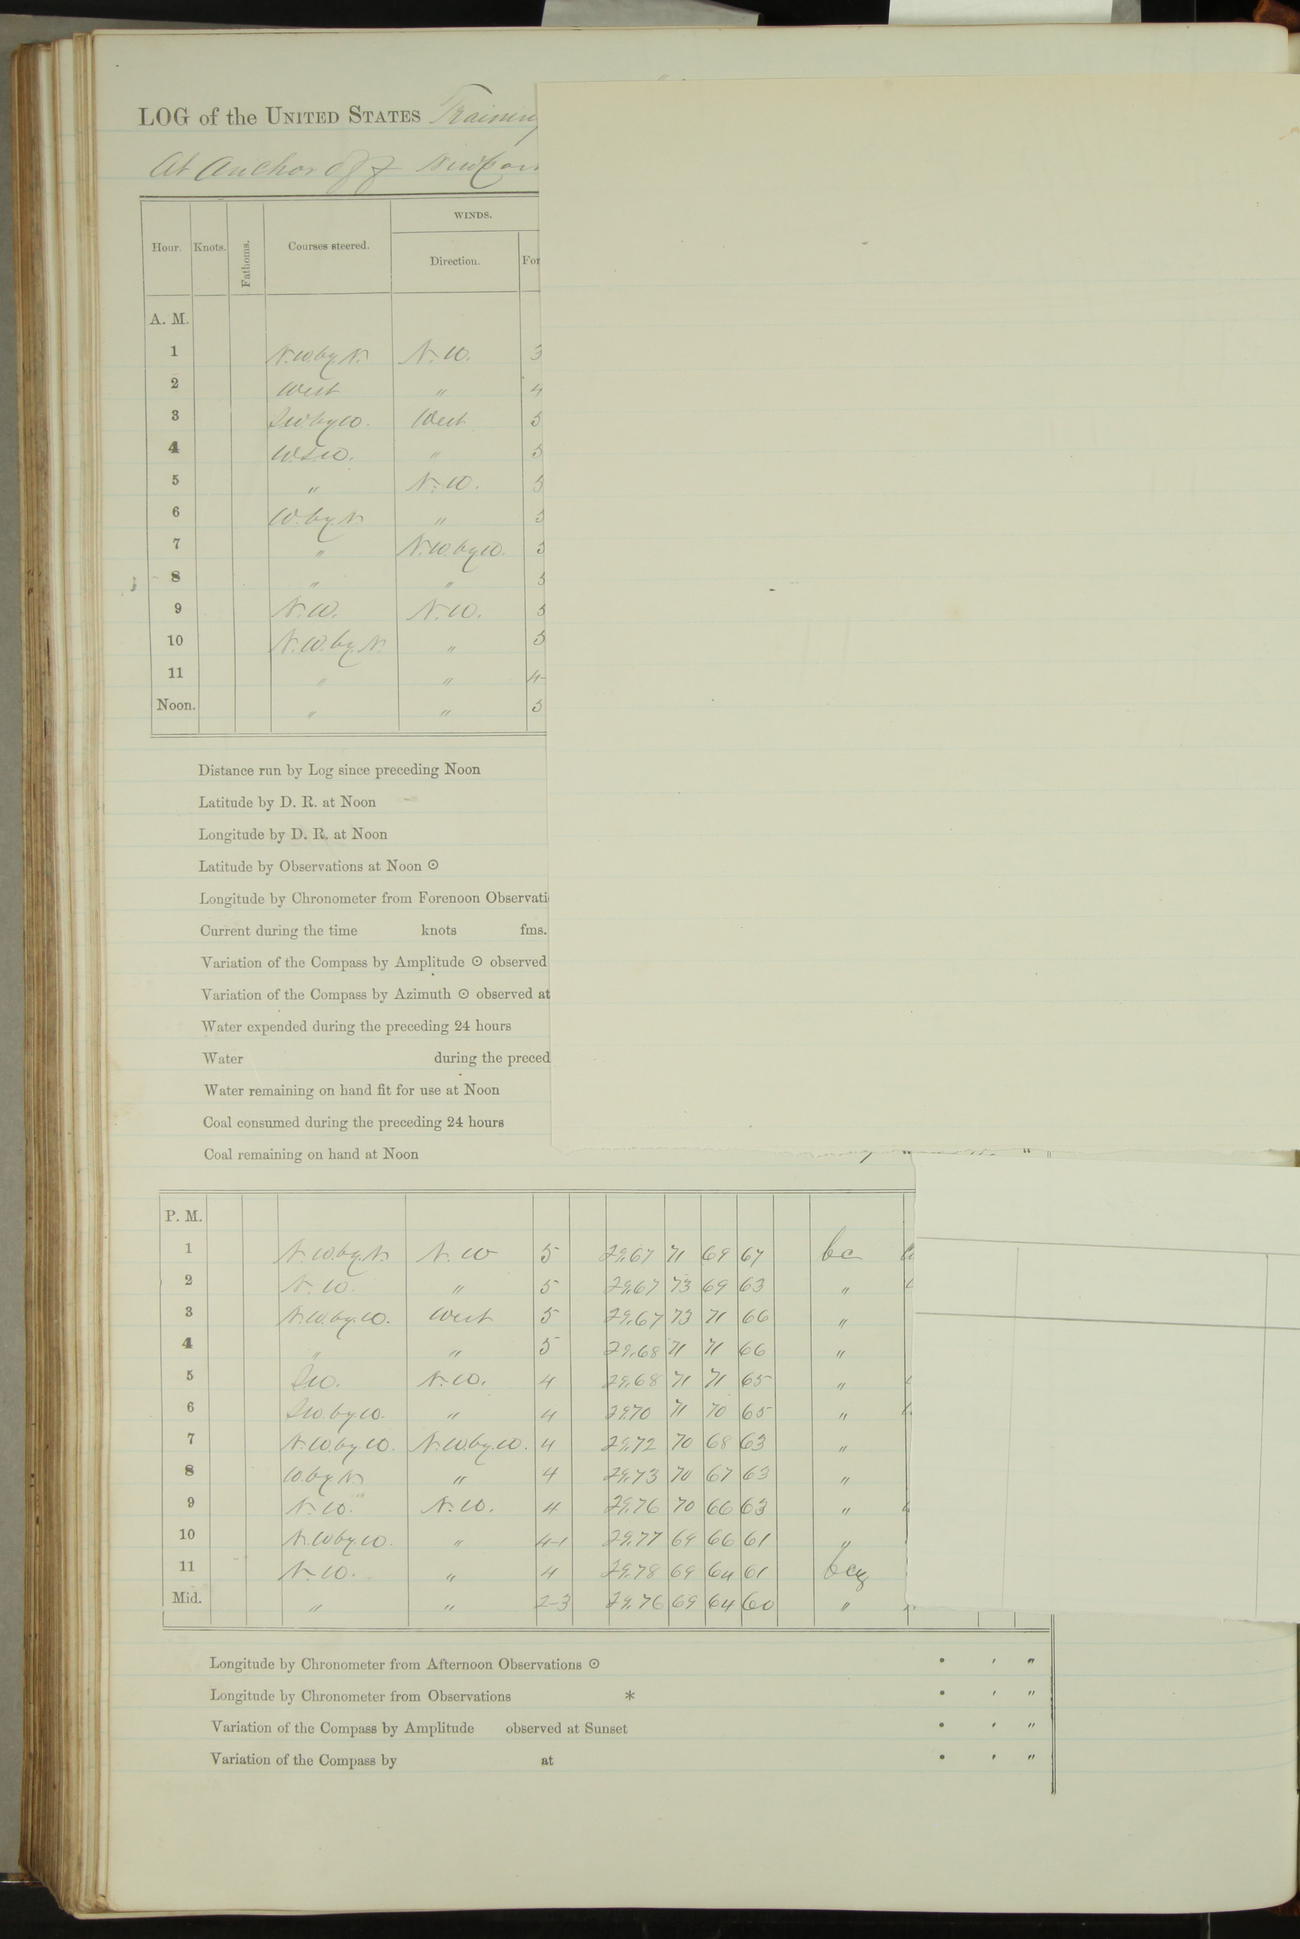 LOG of the UNITED STATES Training
At Anchor off Newport
WINDS.
Hour. Knots. Fathoms. Courses steered. Direction. For
A. M.
1 N.W.by.N. N.W. 3
2 West " 4
3 SW.by.W. West 5
4 W.S.W. " 5
5 " N.W. 5
6 W.by.N. " 5
7 " N.W.by.W. 5
8 " " 5
9 N.W. N.W. 5
10 N.W.by.N. " 5
11 " " 4-
Noon. " " 5
Distance run by Log since preceding Noon
Latitude by D. R. at Noon
Longitude by D. R. at Noon
Latitude by Observations at Noon ⊙
Longitude by Chronometer from Forenoon Observati
Current during the time knots fms.
Variation of the Compass by Amplitude ⊙ observed
Variation of the Compass by Azimuth ⊙ observed at
Water expended during the preceding 24 hours
Water during the preced
Water remaining on hand fit for use at Noon
Coal consumed during the preceding 24 hours
Coal remaining on hand at Noon
P. M.
1 N.W.by.N. N.W 5 29.67 71 69 67 bc
2 N.W. " 5 29.67 73 69 63 "
3 N.W.by.W. West 5 29.67 73 71 66 "
4 " " 5 29.68 71 71 66 "
5 S.W. N.W. 4 29.68 71 71 65 "
6 S.W.by.W. " 4 29.70 71 70 65 "
7 N.W.by.W. N.W.by.W. 4 29.72 70 68 63 "
8 W.by.N. " 4 29.73 70 67 63 "
9 N.W. N.W. 4 29.76 70 66 63 "
10 N.W.by.W. " 4-1 29.77 69 66 61 "
11 N.W. " 4 29.78 69 64 61 bcq
Mid. " " 2-3 29.76 69 64 60 "
Longitude by Chronometer from Afternoon Observations ⊙ ° ′ ″
Longitude by Chronometer from Observations * ° ′ ″
Variation of the Compass by Amplitude observed at Sunset ° ′ ″
Variation of the Compass by at ° ′ ″